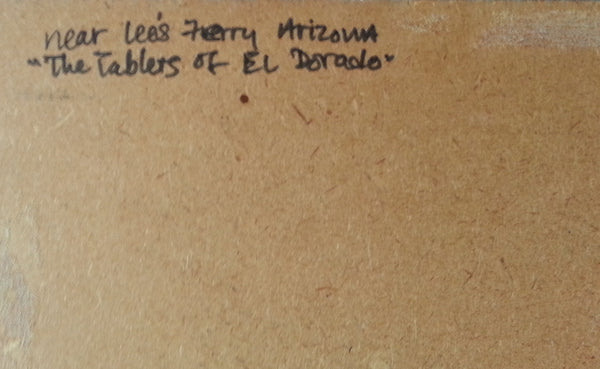 near Leo's Ferry Arizona
"The Tablers of EL Dorado"